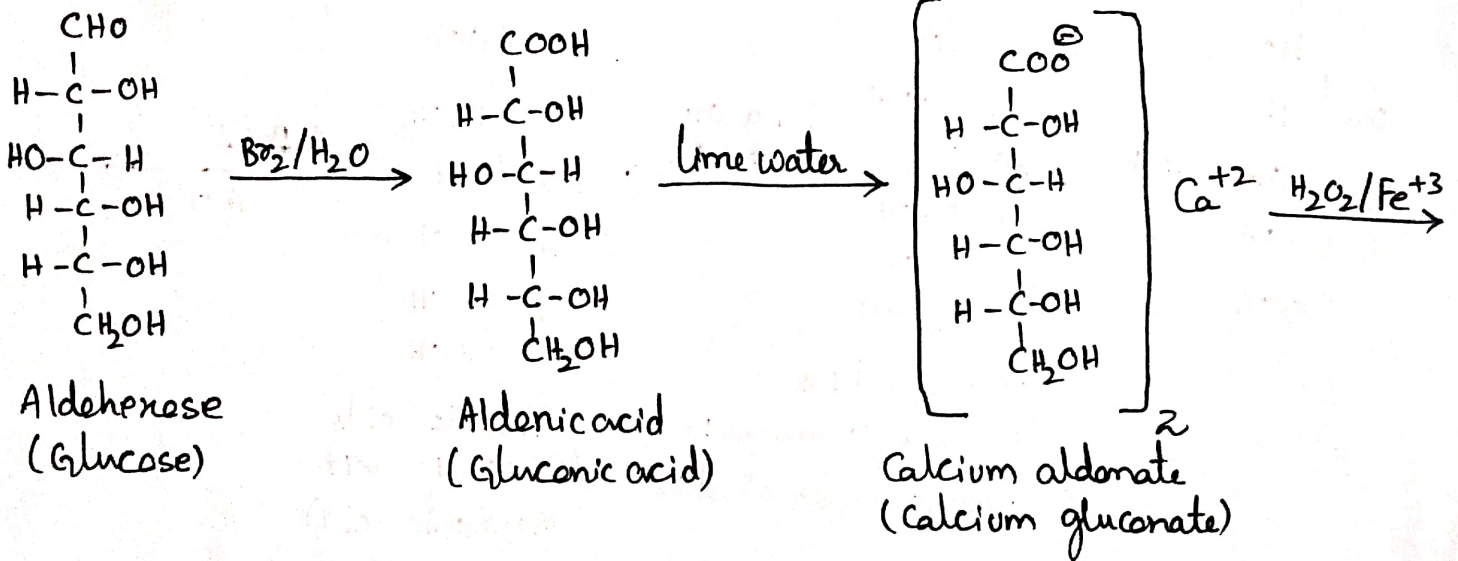 CHO
H-C-OH
HO-C-H
H-C-OH
H-C-OH
CH₂OH
Aldohexose
(Glucose)
Br₂/H₂O
COOH
H-C-OH
HO-C-H
H-C-OH
H-C-OH
CH₂OH
Aldonic acid
(Gluconic acid)
lime water
COO⊖
H-C-OH
HO-C-H
H-C-OH
H-C-OH
CH₂OH
2
Ca⁺²
Calcium aldonate
(Calcium gluconate)
H₂O₂/Fe⁺³